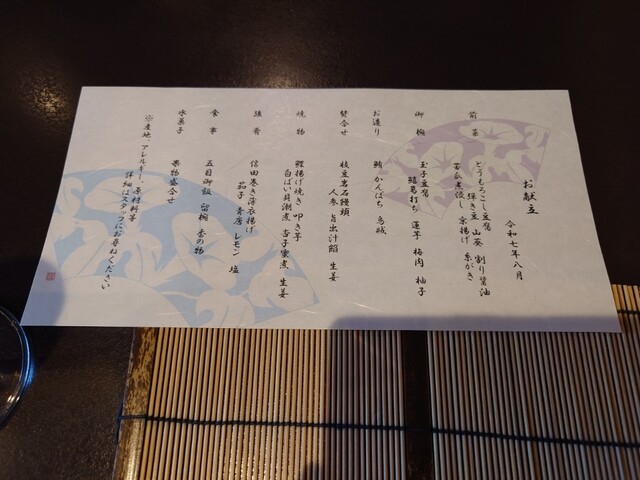 お献立
令和七年八月
前菜
とうもろこし豆腐
弾き豆 山葵 割り醤油
苦瓜煮浸し 東揚げ 糸がき
御椀
玉子豆腐
鱧葛打ち 蓮芋 梅肉 柚子
お造り
鮪 かんぱち 烏賊
焚合せ
枝豆岩石饅頭
人参 旨出汁餡 生姜
焼物
鰹揚げ焼き 叩き芋
白ばい貝潮煮 杏子蜜煮 生姜
強肴
信田巻き薄衣揚げ
茄子 青唐 レモン 塩
食事
五目御飯 留椀 香の物
水菓子
果物盛合せ
※産地、アレルギー、原材料等
詳細はスタッフにお尋ねください